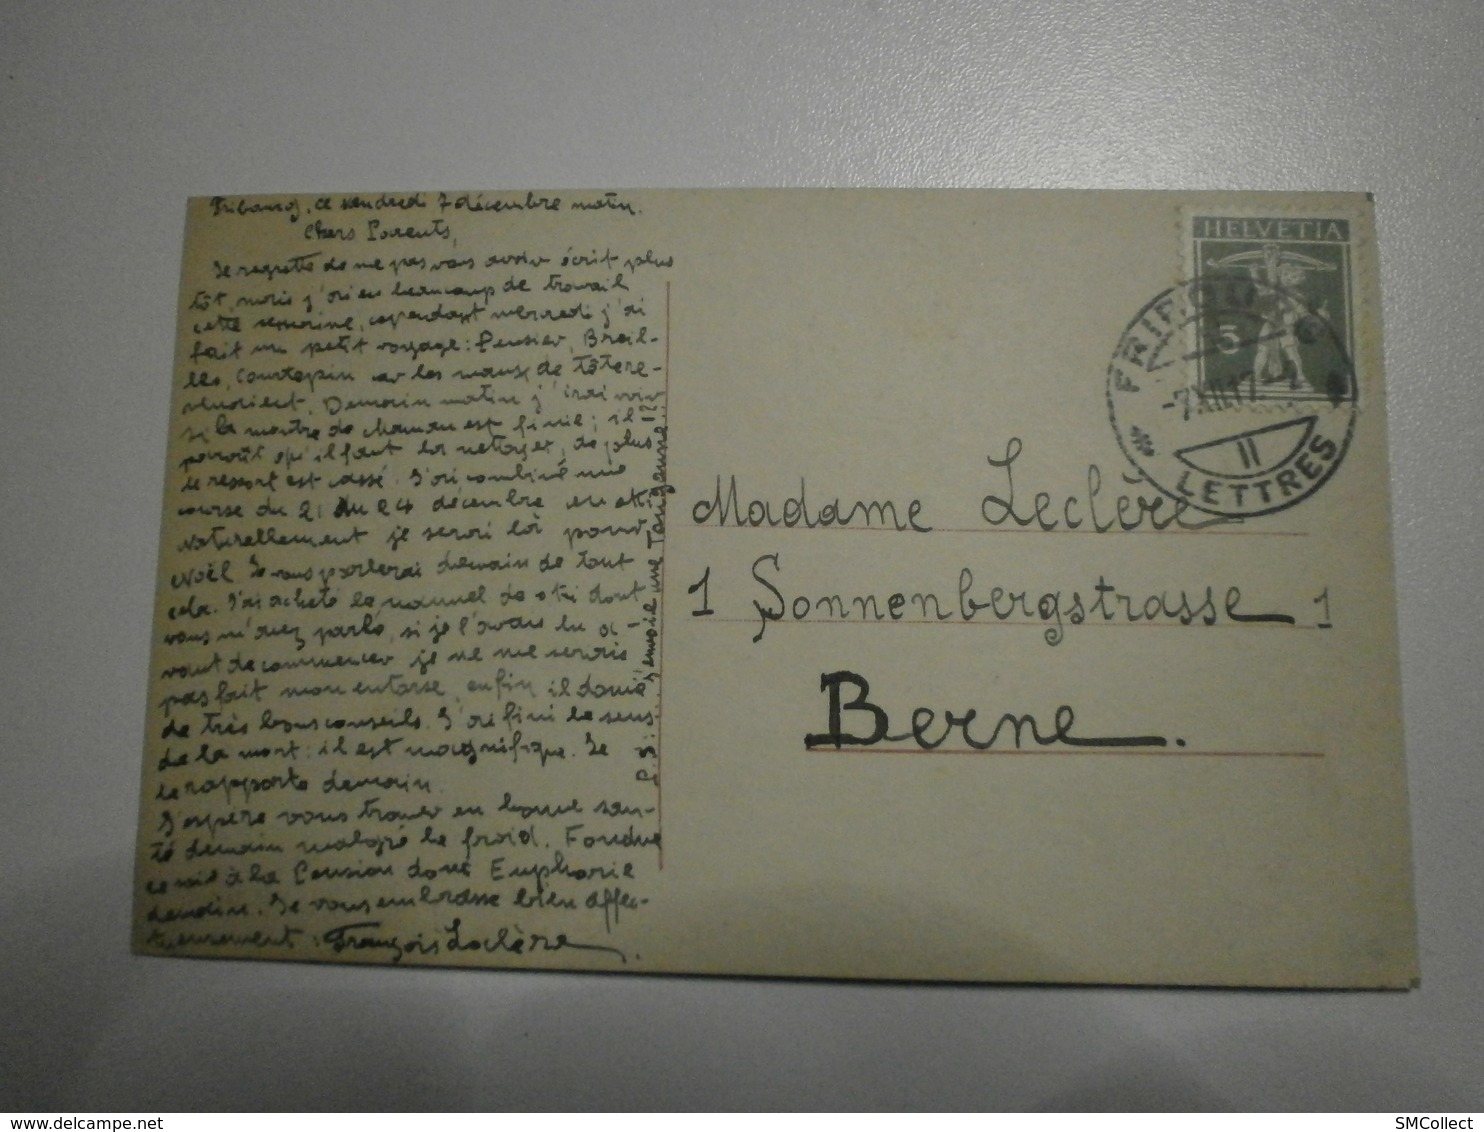 Fribourg, ce vendredi 7 décembre matin.
Chers Parents,
Je regrette de ne pas vous avoir écrit plus
tôt, mais j'ai eu beaucoup de travail
cette semaine, cependant mercredi j'ai
fait un petit voyage: Pensier, Breil-
les, Courtepin av les
Demain matin j'irai voir
si la montre de Maman est finie; il
paraît qu'il faut la nettoyer, de plus
le ressort est cassé. J'ai combiné une
course du 21 au 24 décembre en ski
naturellement je serai là pour
Noël. Je vous parlerai demain de tout
cela. J'ai acheté le manuel de ski dont
vous m'avez parlé, si je l'avais lu a-
vant de commencer je ne me serais
pas fait mon entorse, enfin il donne
de très bons conseils. J'ai fini le sens
de la mort: il est magnifique. Je
le rapporte demain.
J'espère vous trouver en bonne san-
té demain malgré le froid. Fondue
ce soir à la Pension donc Euphorie
demain. Je vous embrasse bien affec-
tueusement: François Leclère.
P.S: J'envoie une
HELVETIA
5
FRIBOURG
-7.XII.17.-
II
LETTRES
Madame Leclère
1 Sonnenbergstrasse 1
Berne.
www.delcampe.net
SMCollect